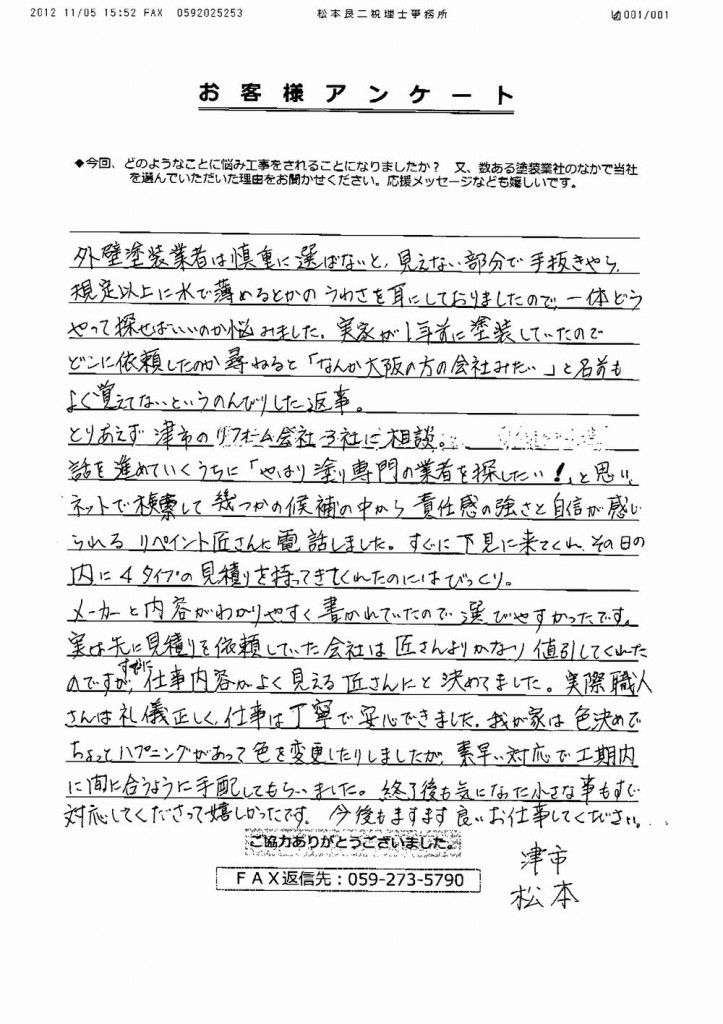 2012 11/05 15:52 FAX 0592025253 松本良二税理士事務所 001/001
お客様アンケート
◆今回、どのようなことに悩み工事をされることになりましたか？ 又、数ある塗装業社のなかで当社
を選んでいただいた理由をお聞かせください。応援メッセージなども嬉しいです。
外壁塗装業者は慎重に選ばないと、見えない部分で手抜きやら、
規定以上に水で薄めるとかのうわさを耳にしておりましたので、一体どう
やって探せばいいのか悩みました。実家が1年前に塗装していたので
どこに依頼したのか尋ねると「なんか大阪の方の会社みたい」と名前も
よく覚えてないというのんびりした返事。
とりあえず津市のリフォーム会社3社に相談。
話を進めていくうちに「やはり塗り専門の業者を探したい！」と思い、
ネットで検索して幾つかの候補の中から責任感の強さと自信が感じ
られるリペイント匠さんに電話しました。すぐに下見に来てくれ、その日の
内に4タイプの見積りを持ってきてくれたのにはびっくり。
メーカーと内容がわかりやすく書かれていたので選びやすかったです。
実は先に見積りを依頼していた会社は匠さんよりかなり値引してくれた
のですが、すぐに仕事内容がよく見える匠さんにと決めてました。実際職人
さんは礼儀正しく、仕事は丁寧で安心できました。我が家は色決めで
ちょっとハプニングがあって色を変更したりしましたが、素早い対応で工期内
に間に合うように手配してもらいました。終了後も気になった小さな事もすぐ
対応してくださって嬉しかったです。今後もますます良いお仕事してください。
ご協力ありがとうございました。
FAX返信先：059-273-5790
津市
松本